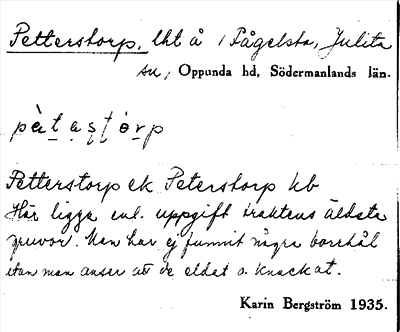 Petterstorp, lht å /Fågelsta, Julita
sn, Oppunda hd, Södermanlands län.
pȧ̀t̲ a̲s̨ţ ȯr̲p
Petterstorp ek Peterstorp kb
Här ligga enl. uppgift traktens äldsta
gruvor. Man har ej funnit några borrhål
utan man anser att de eldat o. knackat.
Karin Bergström 1935.